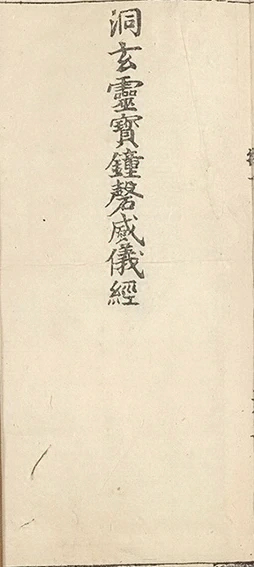 洞玄靈寳鐘磬威儀經